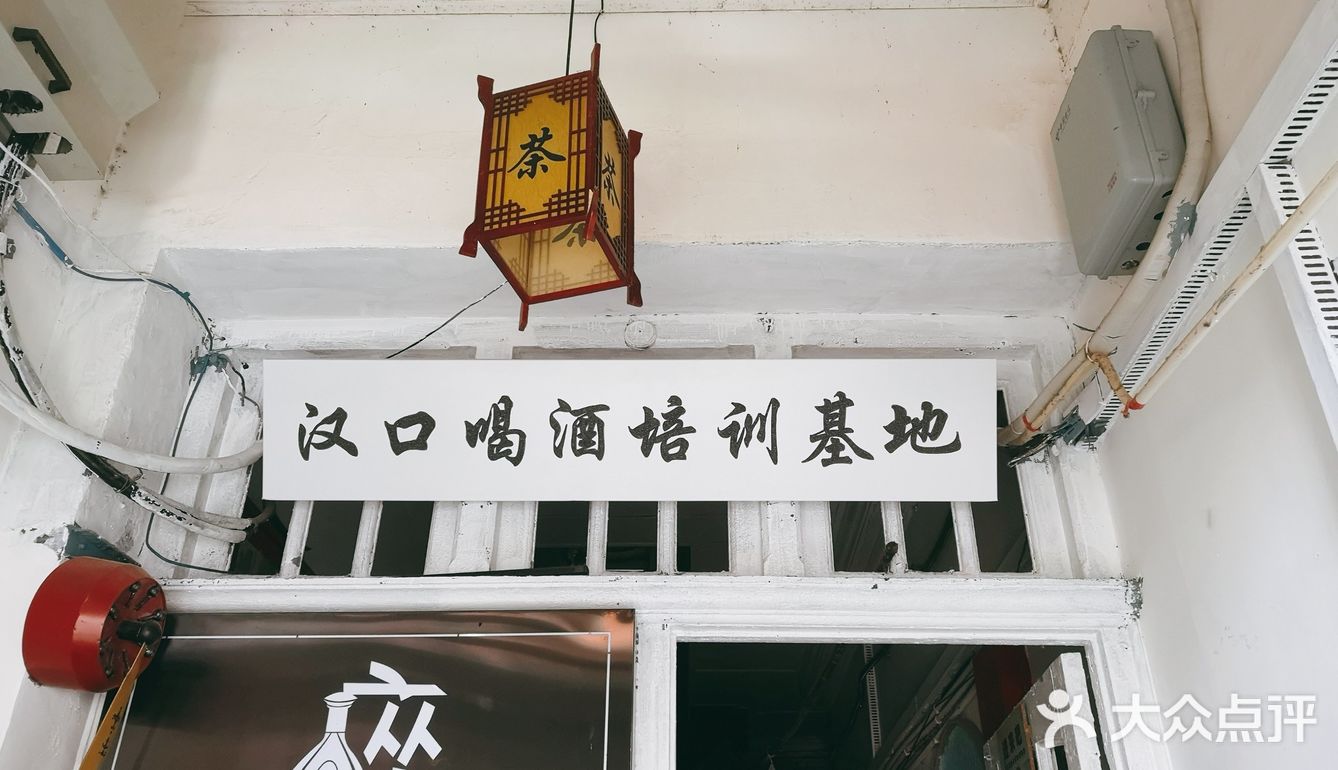 茶
茶
茶
汉口喝酒培训基地
大众点评